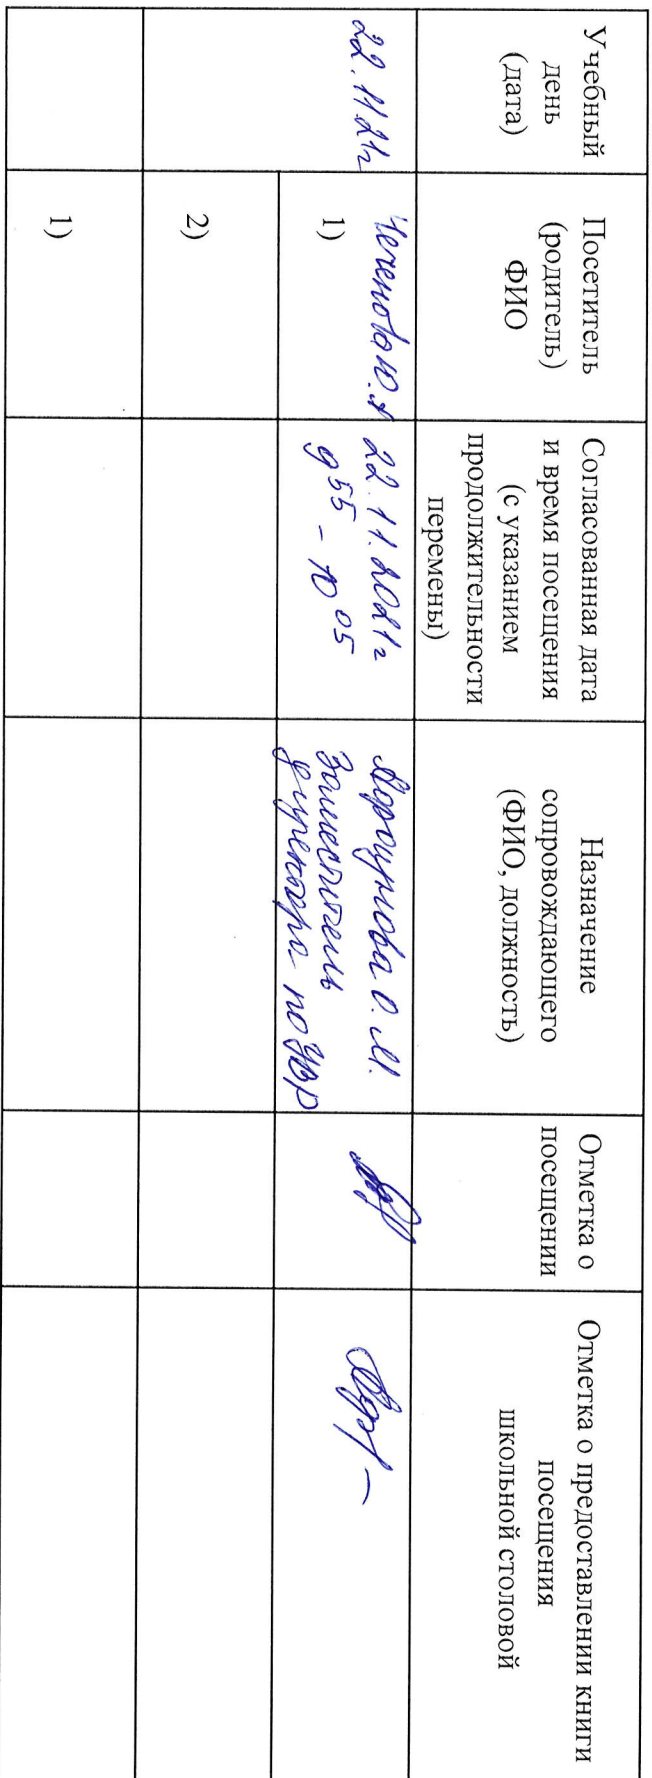 Учебный
день
(дата)
Посетитель
(родитель)
ФИО
Согласованная дата
и время посещения
(с указанием
продолжительности
перемены)
Назначение
сопровождающего
(ФИО, должность)
Отметка о
посещении
Отметка о предоставлении книги
посещения
школьной столовой
22.11.21г
Чеченова Ю.А
1)
22.11.2021г
9 55 - 10 05
О.М.
Заместитель
директора по УВР
2)
1)